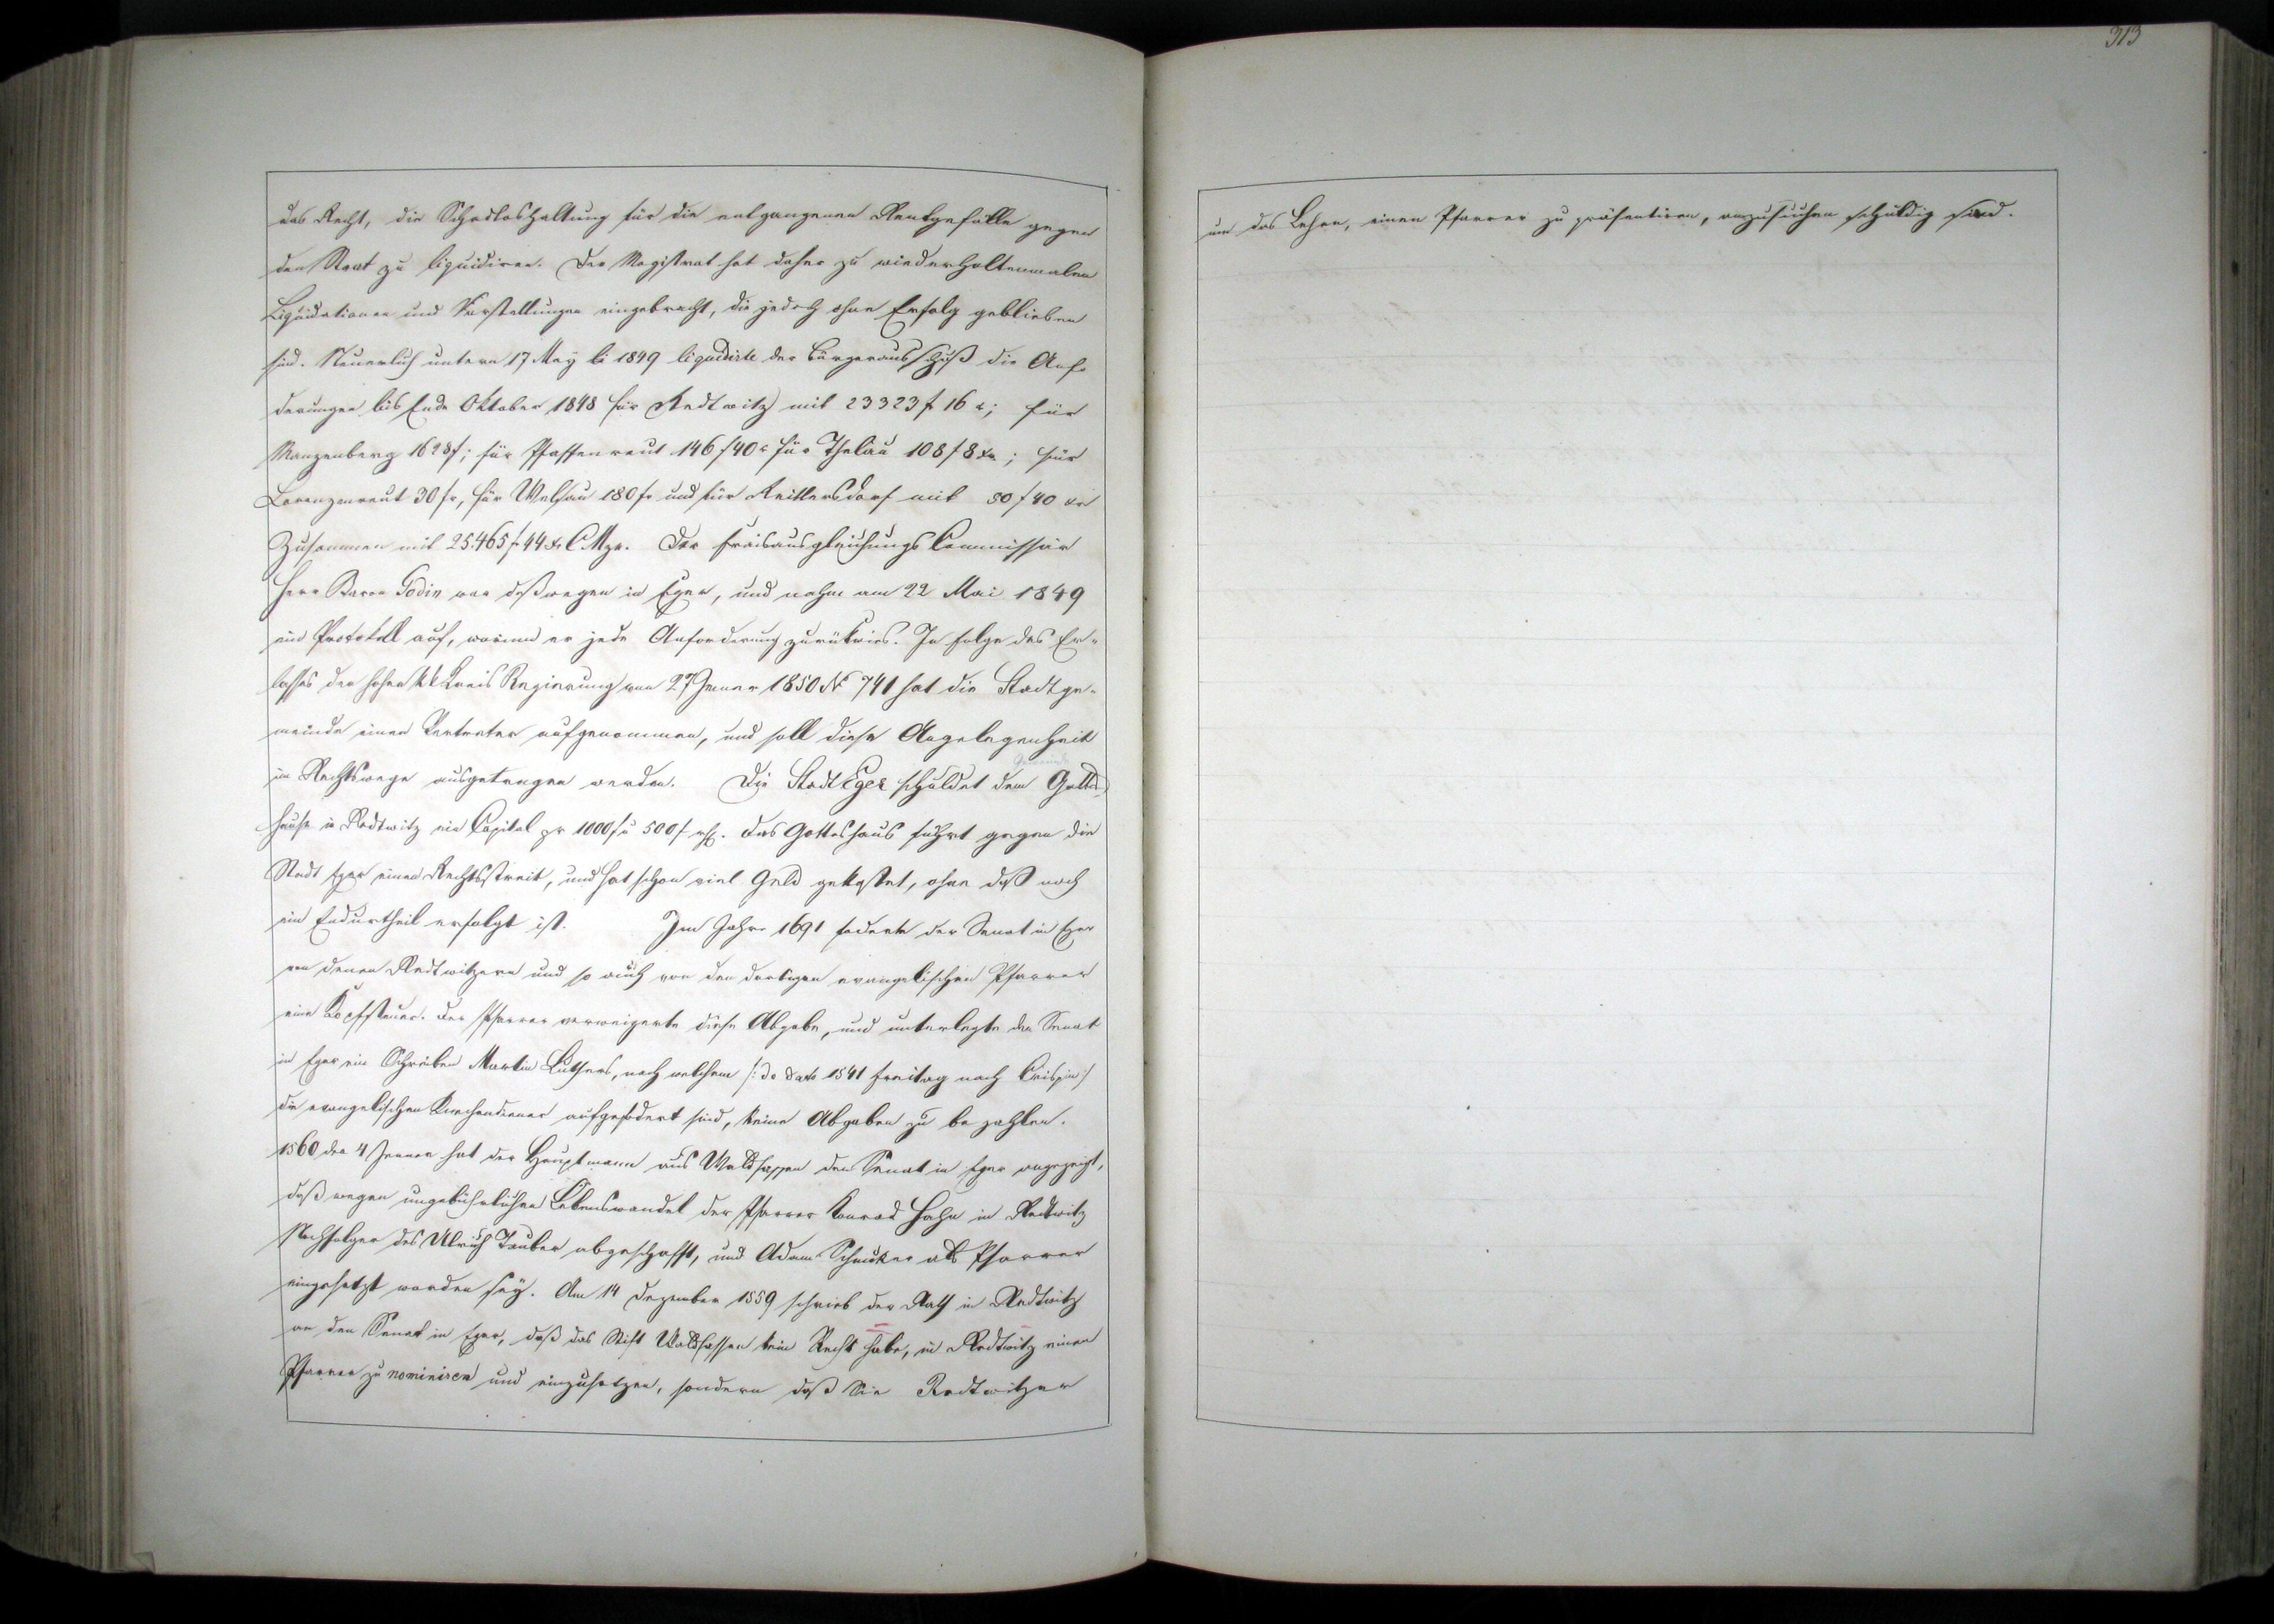 313
das Recht, die Schadloshaltung für die entgangenen Rentgefälle gegen
den Staat zu liquidiren. Der Magistrat hat daher zu wiederholtenmalen
Liquidationen und Vorstellungen eingebracht, die jedoch ohne Erfolg geblieben
sind. Neuerlich untern 17 May 1849 liquidirte der Bürgerausschuß die Anfo
derungen bis Ende Oktober 1848 für Redtwitz mit 23323 f 16 x; für
Manzenberg 1628 f; für Pfaffenreut 146 f 40 x für Thelau 108 f 8 xr; für
Lorenzenreut 30 fr, für Welsau 180 fr und für Reittersdorf mit 50 f 40 xr
Zusammen mit 25.465 f 44 xr CMze. Der Fraisausgleichungs Commissär
Herr Baron Godin war deßwegen in Eger, und nahm am 22 Mai 1849
ein Protokoll auf, worinn er jede Anforderung zurükwies. In Folge des Er-
lasses der hohen kk Kreis Regierung vom 27 Jenner 1850 Nr 741 hat die Stadtge-
meinde einen Vertreter aufgenommen, und soll diese Angelegenheit
im Rechtswege ausgetragen werden. Die Stadt Eger schuldet dem Gottes
hause in Redtwitz ein Capital pr 1000 f u 500 f rh. Das Gotteshaus führt gegen die
Stadt Eger einen Rechtsstreit, und hat schon viel Geld gekostet, ohne daß noch
ein Endurtheil erfolgt ist. Im Jahre 1691 foderte der Senat in Eger
von denen Redtwitzern und so auch von den dortigen evangelischen Pfarrer
eine Kopfsteuer. Der Pfarrer verweigerte diese Abgabe, und unterlegte den Senat
in Eger ein Schreiben Martin Luthers, nach welchem /: de dato 1541 Freitag nach Crispin :/
die evangelischen Kirchendiener aufgefodert sind, keine Abgaben zu bezahlen.
1560 den 4 Jenner hat der Hauptmann aus Waldsassen den Senat in Eger angezeigt,
daß wegen ungebührlichen Lebenswandel der Pfarrer Konrad Hahn in Redtwitz
Nachfolger des Ulrich Tauber abgeschafft, und Adam Schmuker als Pfarrer
eingesetzt worden sey. Am 14 Dezember 1559 schrieb der Rath in Redtwitz
an den Senat in Eger, daß das Stift Waldsassen kein Recht habe, in Redtwitz einen
Pfarrer zu nominiren und einzusetzen, sondern daß Sie Redtwitzer
um das Lehen, einen Pfarrer zu präsentiren, anzusuchen schuldig sind.